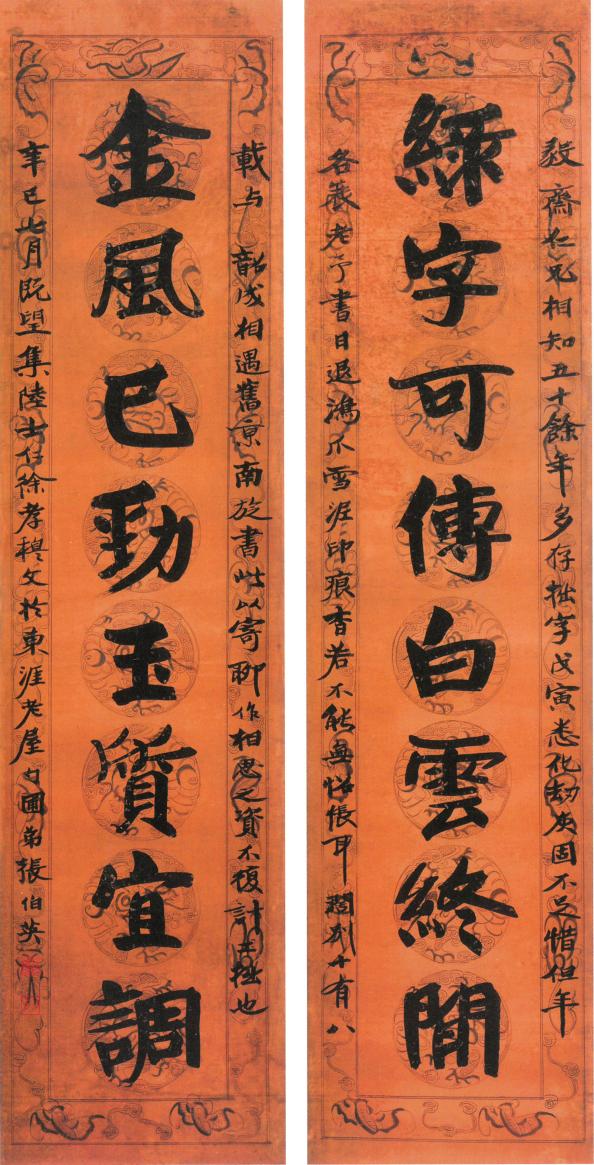 毅齋仁兄相知五十餘年多存拙字戊寅悉化劫灰固不足惜但年
綠字可傳白雲終聞
各衰老予書日退鴻爪雪泥印痕杳若不能無怊悵耳闊别十有八
載与成相遇舊京南旋書此以寄聊作相思之資不復計工拙也
金風已勁玉質宜調
辛巳七月既望集陸徐孝穆文於東涯老屋勺圃弟張伯英